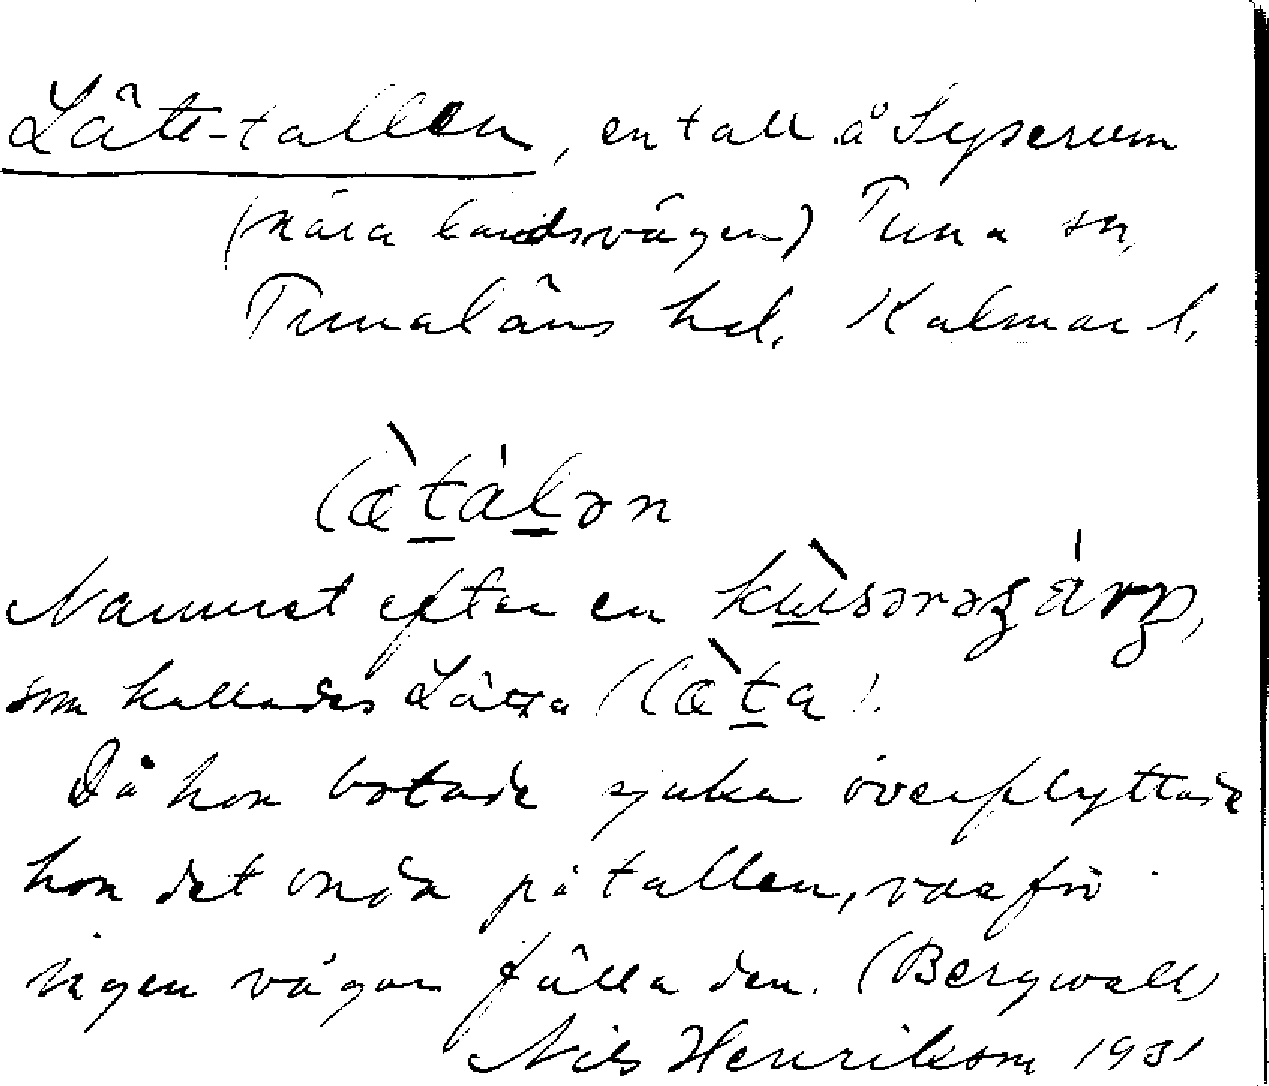 Läte-tallen, en tall å Syserum
(nära landsvägen) Tuna sn,
Tunaläns hd. Kalmar l.
læ̀tálən
Namnet efter en
som kallades Lätta (læ̀ta).
Då hon botade sjuka överflyttade
hon det onda på tallen, varför
ingen vågar fälla den. (Bergwall)
Nils Henrikson 1931